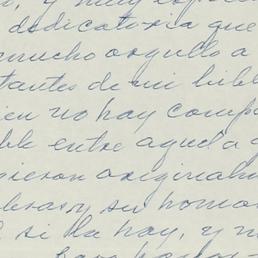 y muy
dedicatoria que
mucho orgullo a
tantes de mi bibl
ien no hay comp
ble entre aquel a
sieron original
bras y su homo
si la hay, y n